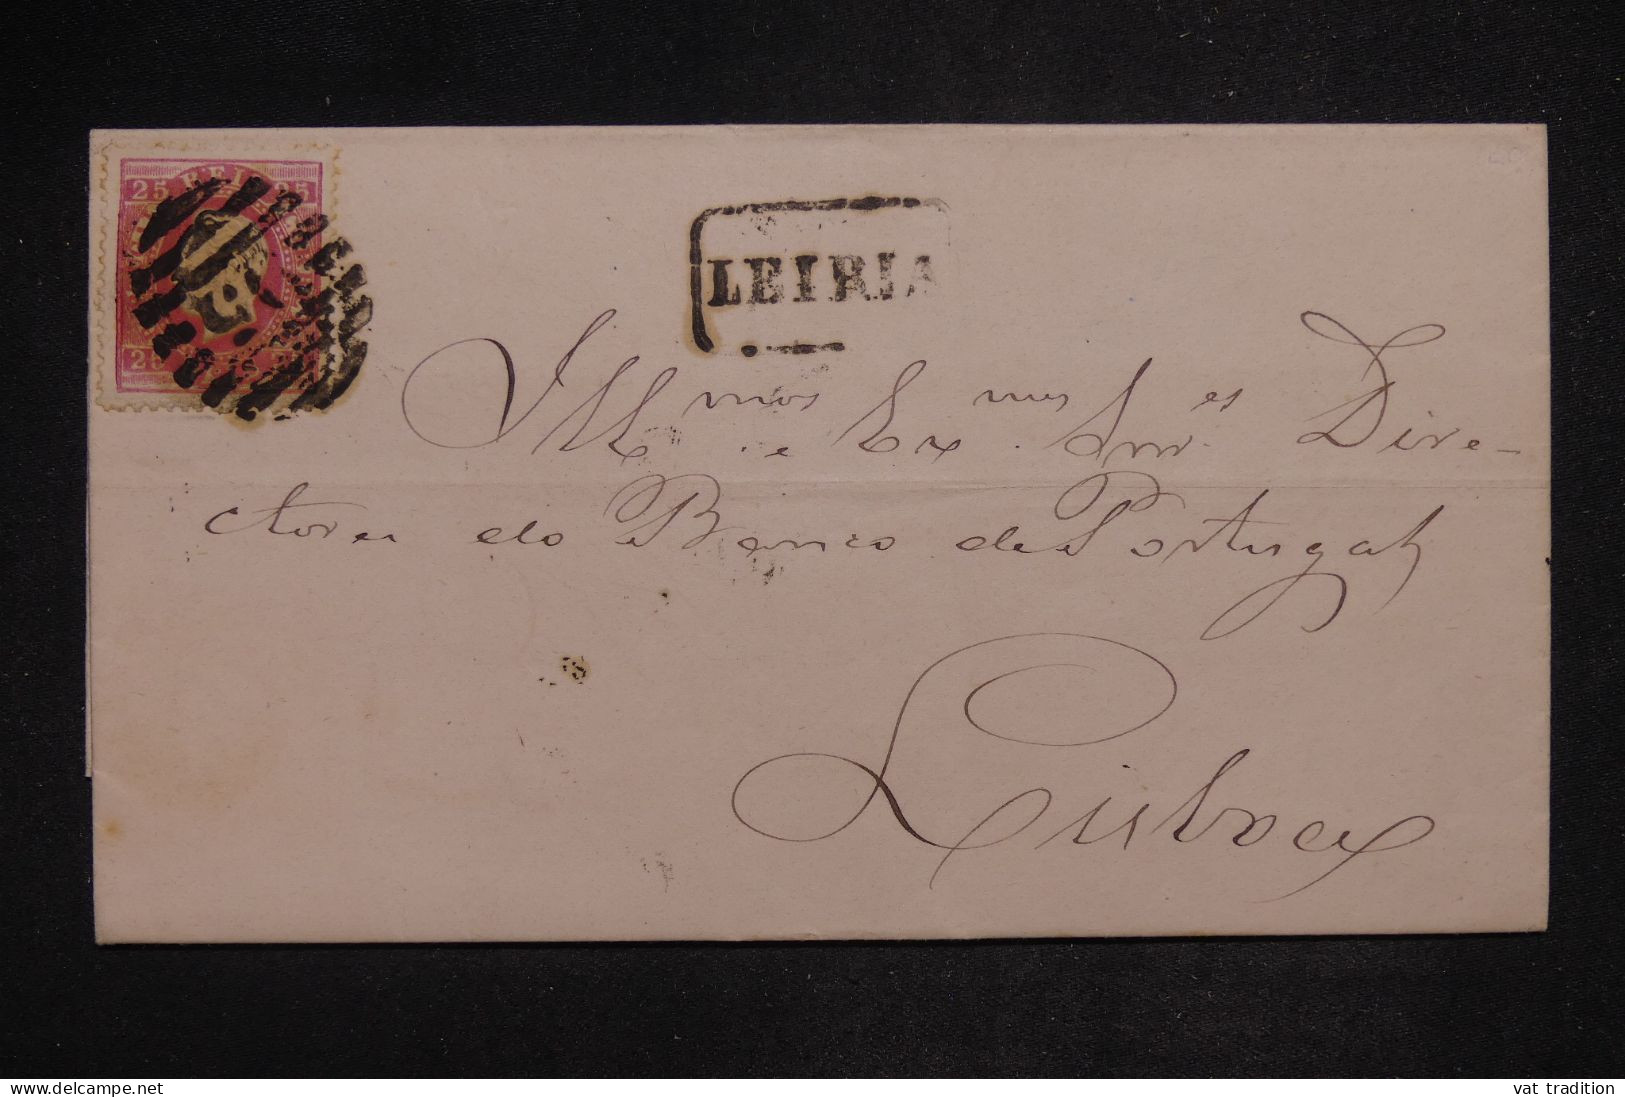 25 REIS 25
25
LEIRIA
Illmos. e Exmos. Snres Dire-
ctores do Banco de Portugal
Lisboa
© delcampe.net
vat tradition